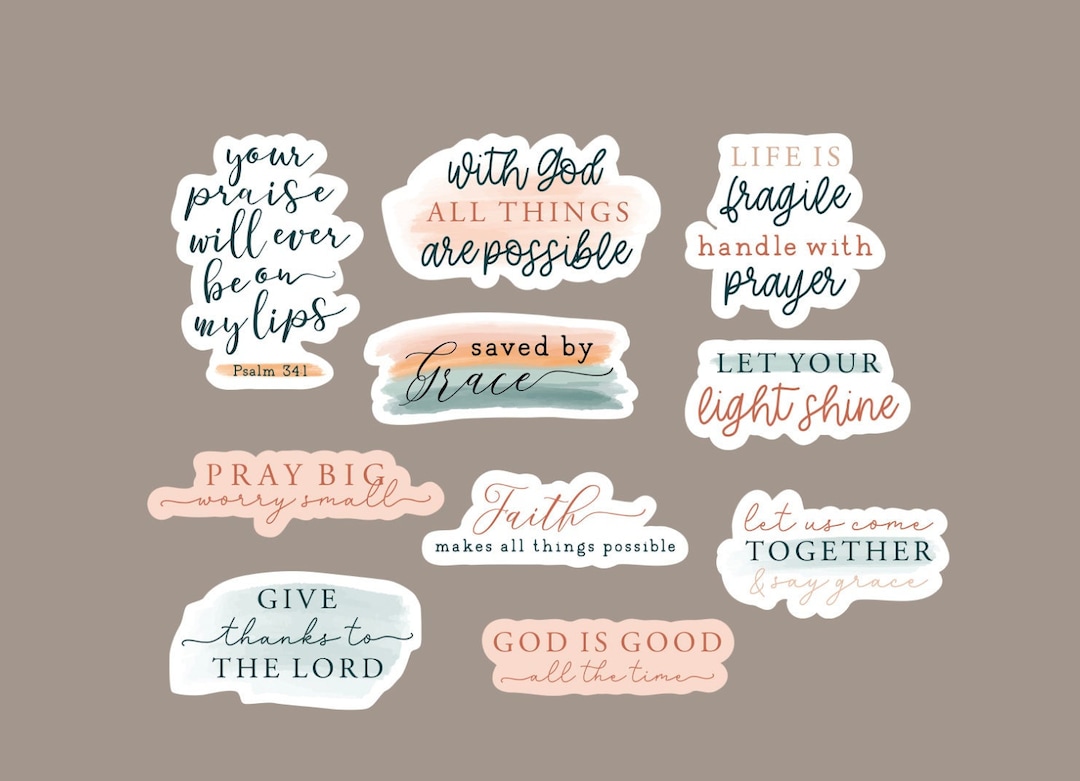 your
praise
will ever
be on
my lips
Psalm 341
with God
ALL THINGS
are possible
LIFE IS
fragile
handle with
prayer
saved by
Grace
LET YOUR
light shine
PRAY BIG
worry small
Faith
makes all things possible
let us come
TOGETHER
& say grace
GIVE
thanks to
THE LORD
GOD IS GOOD
all the time